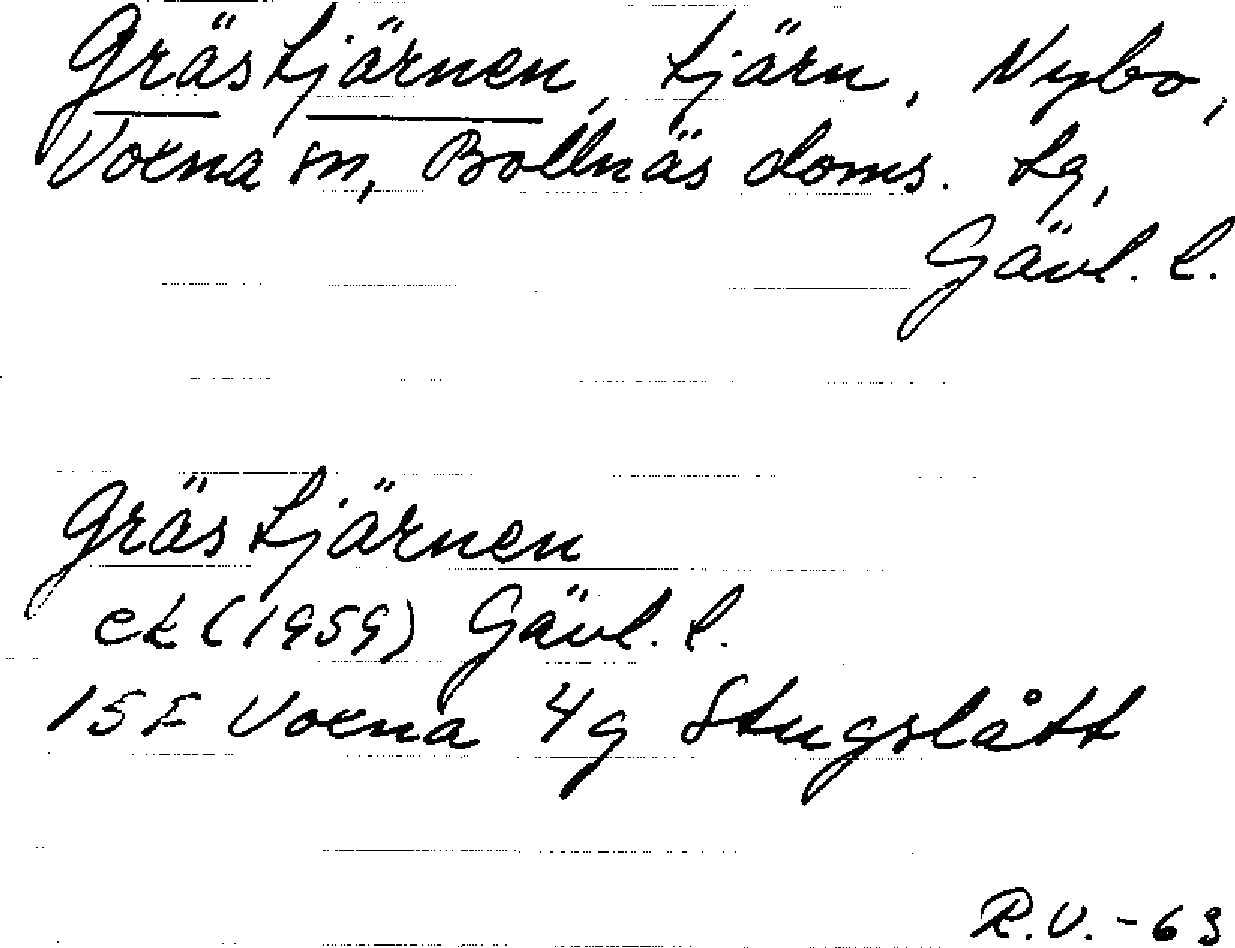 Grästjärnen, tjärn, Nybo,
Voxna sn, Bollnäs doms. tg,
Gävl. l.
Grästjärnen
ek (1959) Gävl. l.
15F Voxna 4g Stugslått
R.V. -63